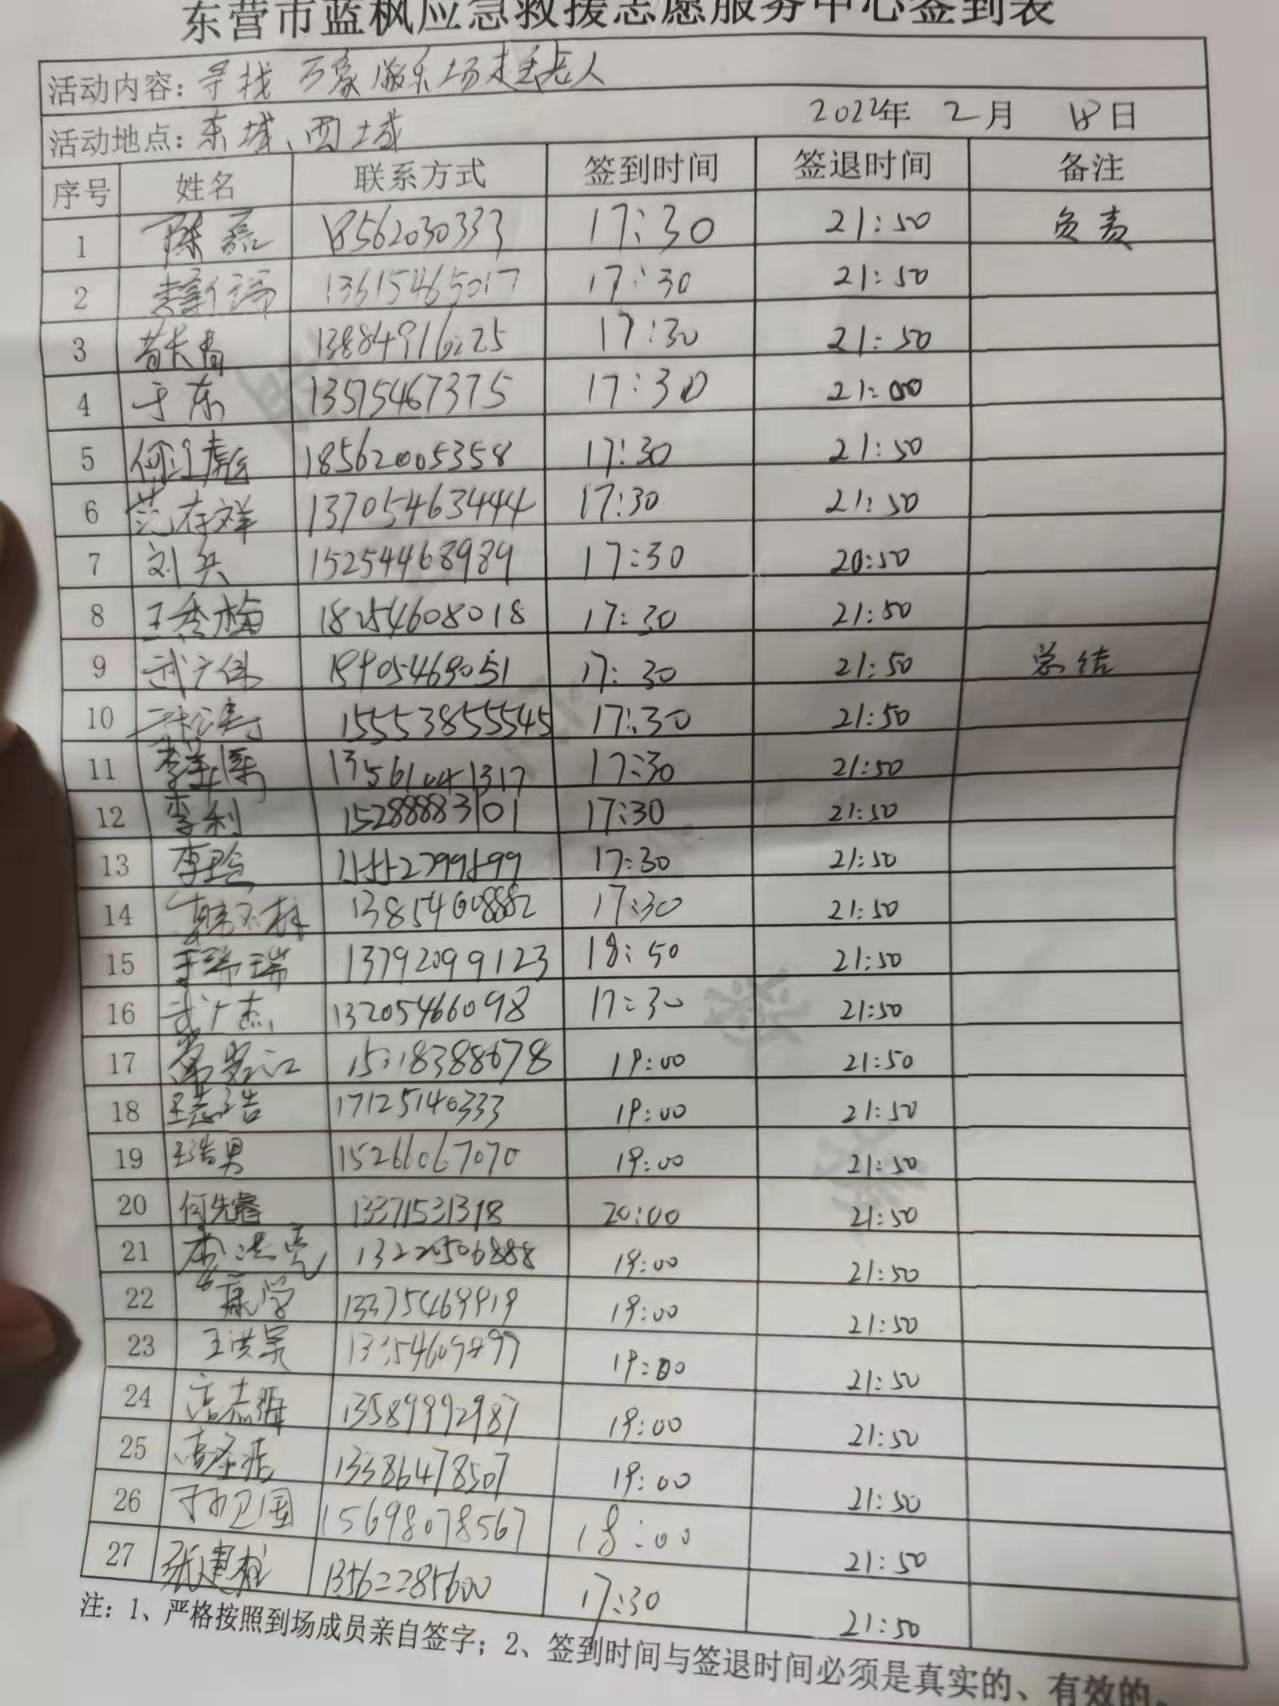 东营市蓝枫应急救援志愿服务中心签到表
活动内容：寻找万象游乐场走丢老人
活动地点：东城、西城 2022年 2月 18日
序号 姓名 联系方式 签到时间 签退时间 备注
1 陈磊 18562030333 17:30 21:50 负责
2 13615465017 17:30 21:50
3 17:30 21:50
4 于东 13515467375 17:30 21:00
5 18562005358 17:30 21:50
6 范存祥 13705463444 17:30 21:50
7 刘兵 15254468989 17:30 20:50
8 王秀梅 18254608018 17:30 21:50
9 武广伟 17:30 21:50 总结
10 15553855545 17:30 21:50
11 17:30 21:50
12 李利 15288883101 17:30 21:50
13 李玲 17:30 21:50
14 13854608882 17:30 21:50
15 于瑞瑞 13792099123 18:50 21:50
16 武广杰 13205466098 17:30 21:50
17 15318388678 19:00 21:50
18 17125140333 19:00 21:50
19 15266067070 19:00 21:50
20 何先睿 13371531318 20:00 21:50
21 李洪亮 13220506888 19:00 21:50
22 19:00 21:50
23 王洪昊 19:00 21:50
24 高志强 13589992987 19:00 21:50
25 13386478507 19:00 21:50
26 15698078567 18:00 21:50
27 张建松 13562285600 17:30 21:50
注：1、严格按照到场成员亲自签字；2、签到时间与签退时间必须是真实的、有效的。